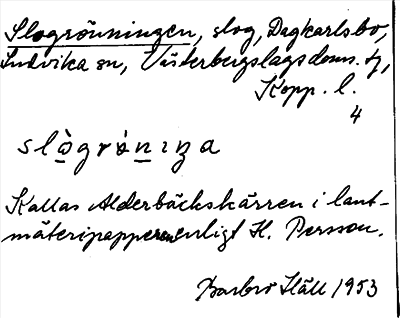 Slogrönningen, slog, Dagkarlsbo,
Ludvika sn, Västerbergslags doms. tg,
Kopp. l.
4
slògrȯ́nıŋa
Kallas Alderbäckskärren i lant-
mäteripapperen enligt H. Persson.
Barbro Häll 1953